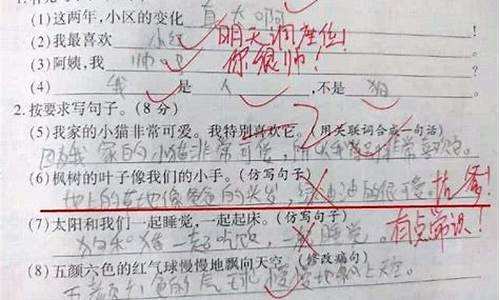 (1)这两年,小区的变化 真大啊
(2)我最喜欢 小红 明天调座位!
(3)阿姨,我 帅吧 你很帅!
(4) 我 是 人 ,不是 狗
2.按要求写句子。(8分)
(5)我家的小猫非常可爱。我特别喜欢它。(用关联词合成一句话)
因为我家的小猫非常可爱,所以我 非常喜欢它。
(6)枫树的叶子像我们的小手。(仿写句子)
地上的草地像爸爸的头发,绿油油的很 。 爹!
(7)太阳和我们一起睡觉,一起起床。(仿写句子)
狗和猪一起吃饭,一 睡觉。 有点常识!
(8)五颜六色的红气球慢慢地飘向天空。(修改病句)
五颜六色的气球慢慢地飘上天空。